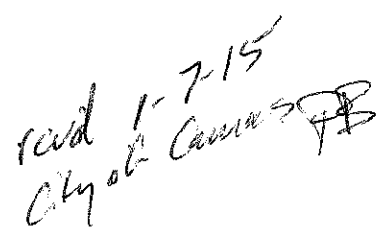 rcvd 1-7-15
City of Camas PB